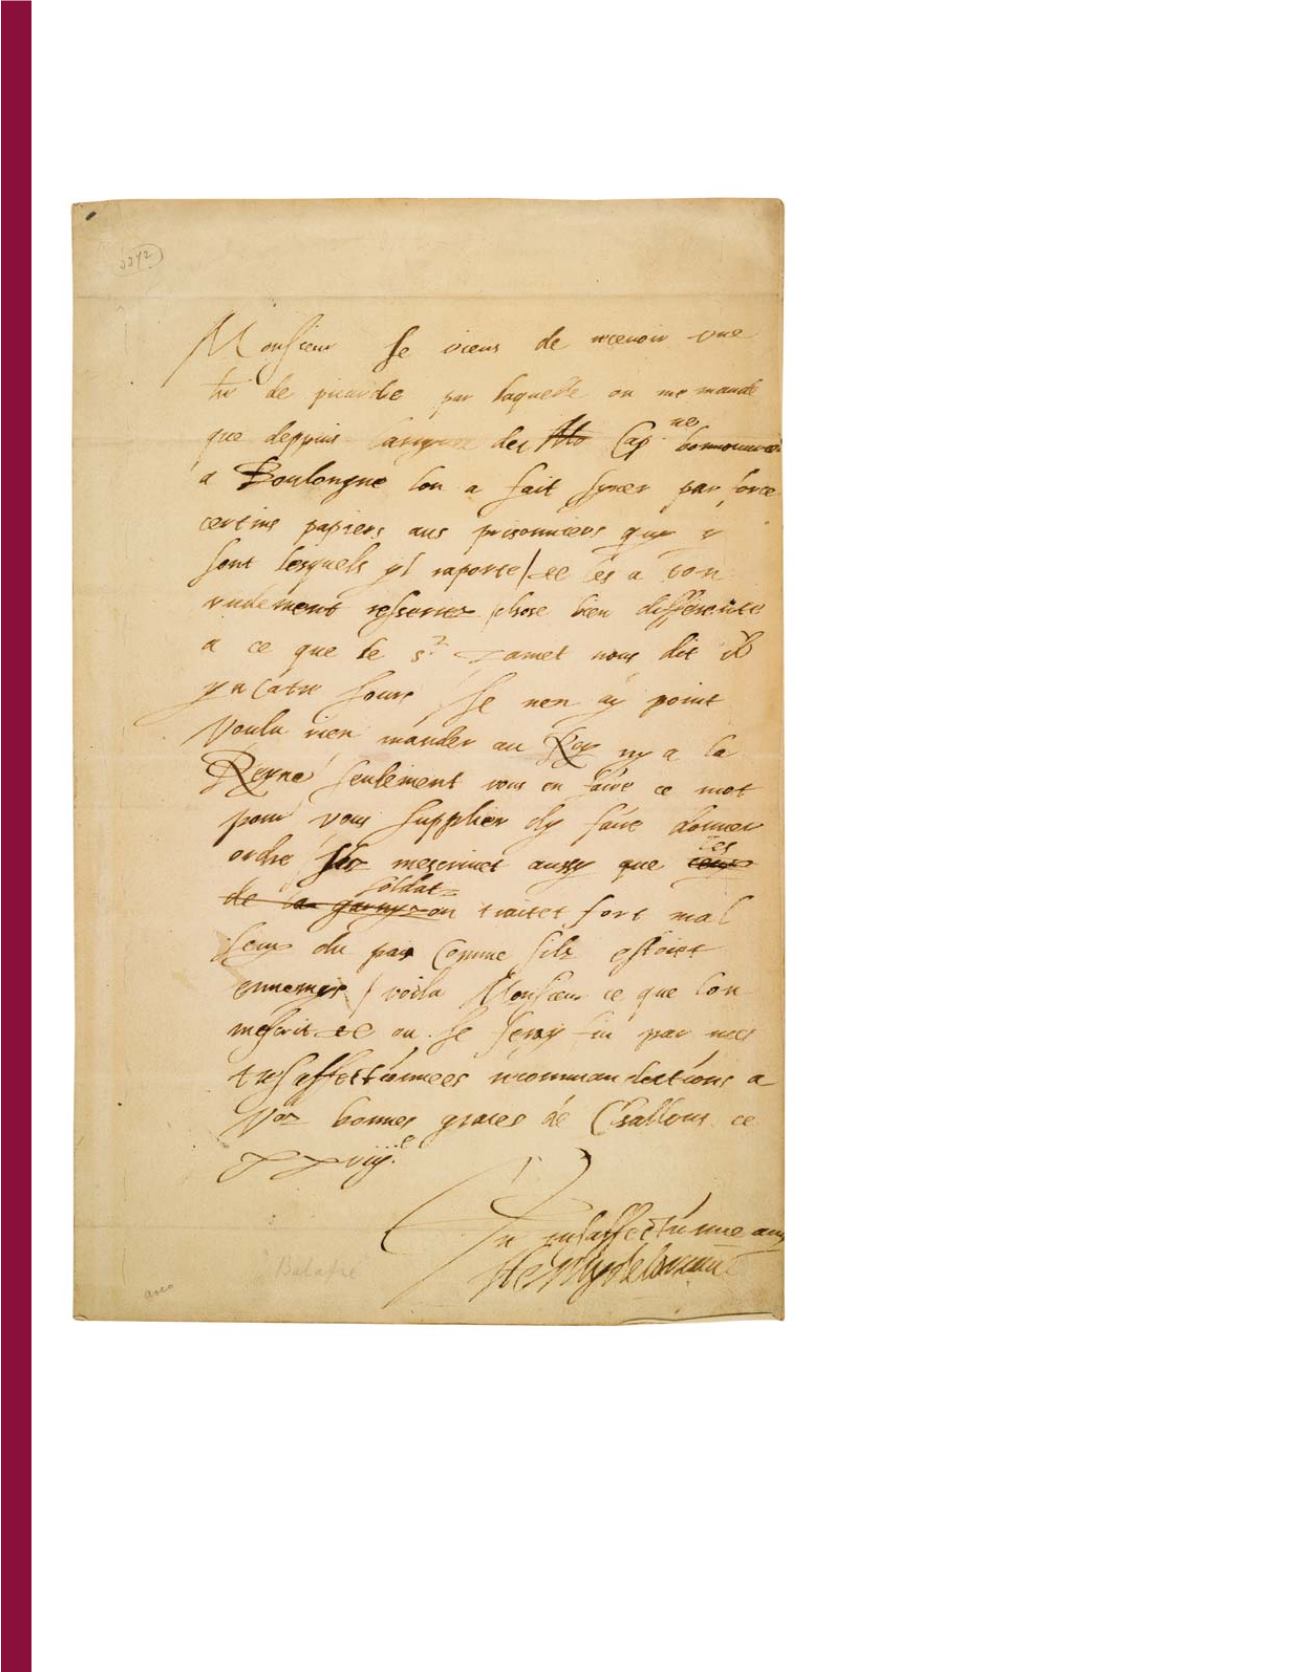 2242
Monsieur Je viens de recevoir une
lre de picardie par laquelle on me mande
que deppuis des Cap ne
a Boulongne lon a fait syner par force
certins papiers aus prisonniers quy y
sont lesquels yl raporte / et les a lon
rudement resserrez chose bien differente
a ce que le sr zamet nous dit
yn Jours Je nen ay point
voulu rien mander au Roy ny a la
Reyne seulement vous en faire ce mot
pour vous supplier dy faire donner
ordre filz mescrivet aussy que ces
ceux
soldatz
de la garnyzon traitet fort mal
seux du pais comme silz estoiet
ennemys / voila Monsieur ce que lon
mescrit et ou Je feray fin par mes
tresaffectionnees recommandations a
voz bonnes graces de Challons ce
xxviije
amy
Henry de lorraine
Balafré